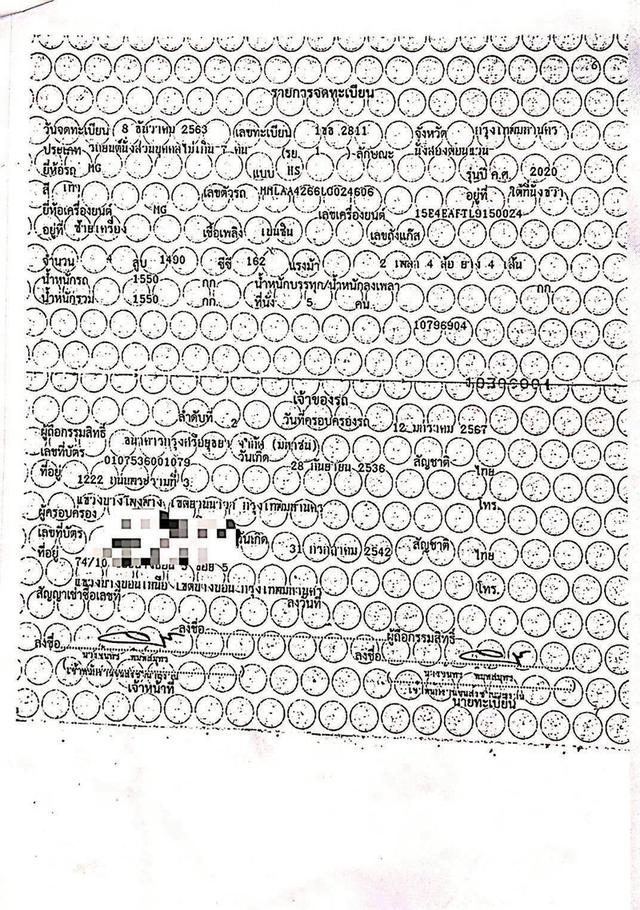 6
รายการจดทะเบียน
วันจดทะเบียน 8 ธันวาคม 2563 เลขทะเบียน 1ขธ 2811 จังหวัด กรุงเทพมหานคร
ประเภท รถยนต์นั่งส่วนบุคคลไม่เกิน 7 คน (รย. 1 ) ลักษณะ นั่งสองตอนแวน
ยี่ห้อรถ MG แบบ HS รุ่นปี ค.ศ. 2020
สี เทา เลขตัวรถ MMLAA4266L0024606 อยู่ที่ ใต้ที่นั่งขวา
ยี่ห้อเครื่องยนต์ MG เลขเครื่องยนต์ 15E4EAFTL9150024
อยู่ที่ ซ้ายเครื่อง เชื้อเพลิง เบนซิน เลขถังแก๊ส
จำนวน 4 สูบ 1490 ซีซี 162 แรงม้า 2 เพลา 4 ล้อ ยาง 4 เส้น
น้ำหนักรถ 1550 กก. น้ำหนักบรรทุก/น้ำหนักลงเพลา กก.
น้ำหนักรวม 1550 กก. ที่นั่ง 5 คน
10796904
เจ้าของรถ
ลำดับที่ 2 วันที่ครอบครองรถ 12 มกราคม 2567
ผู้ถือกรรมสิทธิ์ ธนาคารกรุงศรีอยุธยา จำกัด (มหาชน)
เลขที่บัตร 0107536001079 วันเกิด 28 กันยายน 2536 สัญชาติ ไทย
ที่อยู่ 1222 ถนนพระรามที่ 3
แขวงบางโพงพาง เขตยานนาวา กรุงเทพมหานคร โทร.
ผู้ครอบครอง
เลขที่บัตร วันเกิด 31 กรกฎาคม 2542 สัญชาติ ไทย
ที่อยู่ 74/10 ซอย 5
แขวงบางบอนเหนือ เขตบางบอน กรุงเทพมหานคร โทร.
สัญญาเช่าซื้อเลขที่ ลงวันที่
ลงชื่อ ผู้ถือกรรมสิทธิ์
ลงชื่อ ลงชื่อ
เจ้าหน้าที่ นายทะเบียน